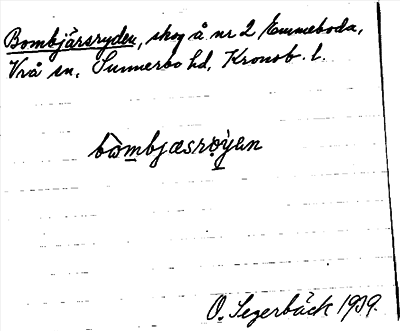 Bombjärsryden, skog å nr 2 Emmeboda,
Vrå sn, Sunnerbo hd, Kronob. l.
bòmbjæsrọ̀yen
O. Segerbäck 1939.